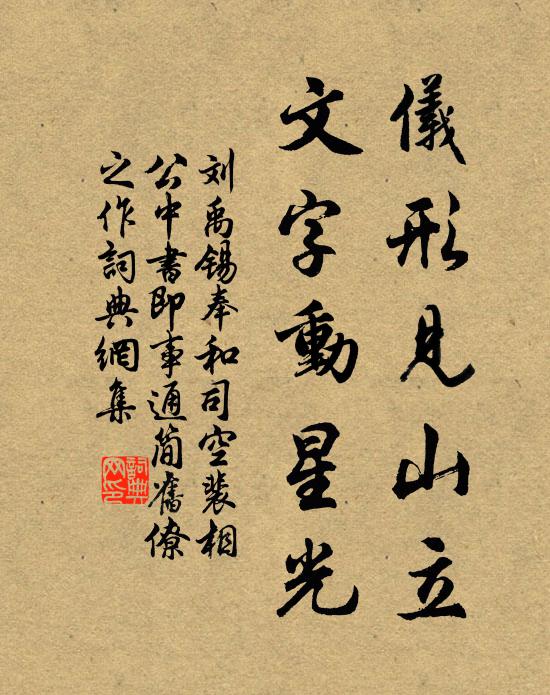 儀形見山立
文字動星光
刘禹錫奉和司空裴相
公中書即事通簡舊僚
之作詞典網集
詞典
网印